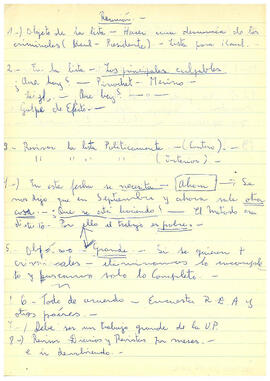 Reunión.-
1-) Objeto de la lista - Hacer una denuncia de los
criminales ( - Presidente) - Lista para
2.- En la lista - Los principales culpables
¿Que hay? - Pinochet - Merino -
Leigh, - Que hay? -
Golpe de Efecto. -
3.- Revisar la lista Politicamente - (Centro). -
" " " " (Interior) -
4-) En esta fecha se necesitan - Ahora - Se
nos dijo que en Septiembre y ahora sale otra
cosa - Que se está haciendo! - El Método era
Por ello el trabajo es pobre. -
5. grande - Si se quieren
- eliminamos lo incomple
to y buscamos solo lo Completo. -
6 - Todo de acuerdo - Encuesta R.D.A y
otros paises. -
7 - / Debe ser un trabajo grande de la U.P.
8-) Revisar Diarios y Revistas por meses. -
e ir -